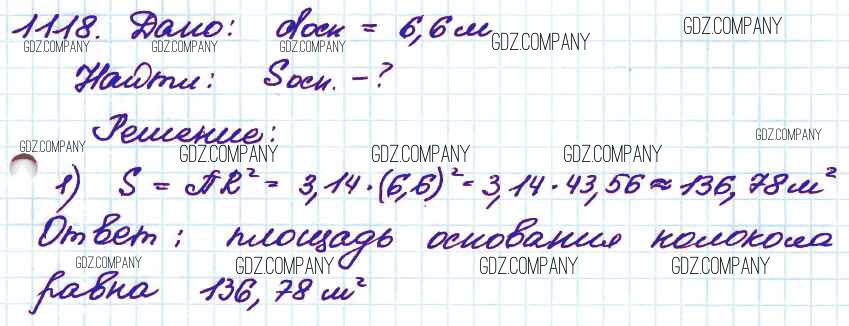 1118. Дано: dосн = 6,6 м
GDZ.COMPANY GDZ.COMPANY GDZ.COMPANY GDZ.COMPANY GDZ.COMPANY
Найти: Sосн. - ?
Решение:
GDZ.COMPANY GDZ.COMPANY GDZ.COMPANY GDZ.COMPANY GDZ.COMPANY
1) S = πR² = 3,14 · (6,6)² = 3,14 · 43,56 ≈ 136,78 м²
Ответ: площадь основания колокола
GDZ.COMPANY GDZ.COMPANY GDZ.COMPANY GDZ.COMPANY
равна 136,78 м²